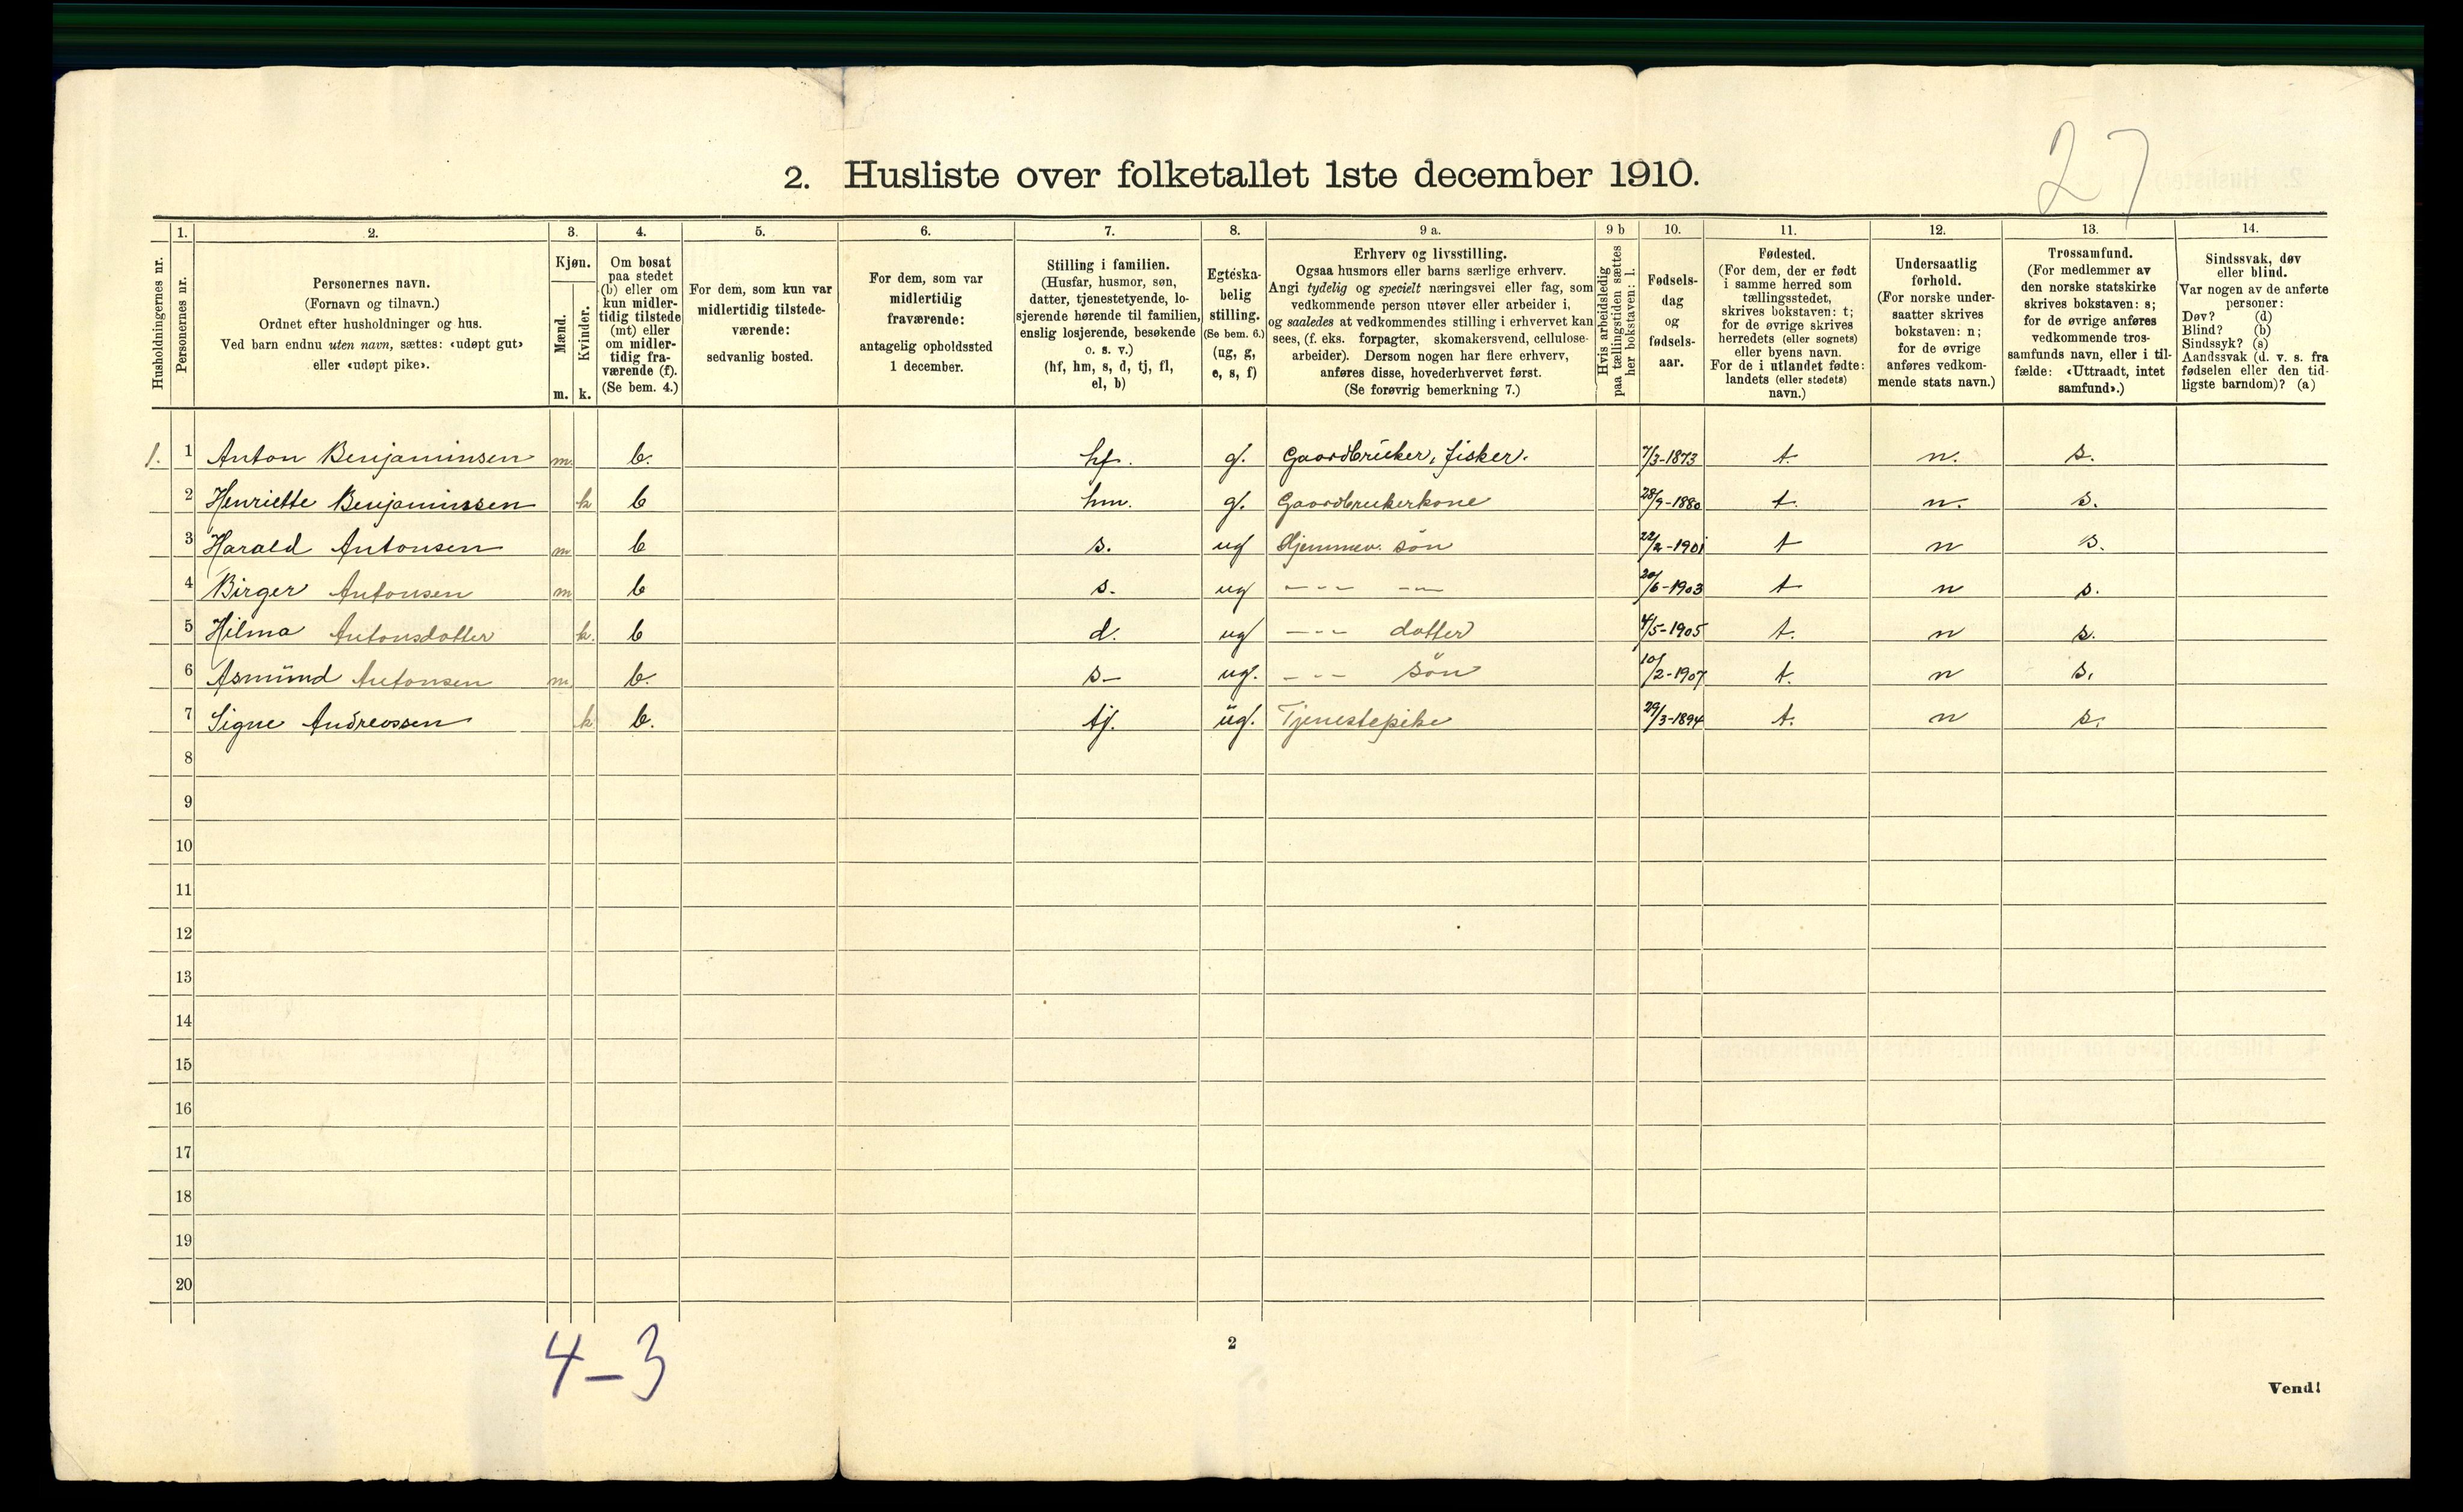 27
2. Husliste over folketallet 1ste december 1910.
Husholdningernes nr.
1. Personernes nr.
2. Personernes navn. (Fornavn og tilnavn.) Ordnet efter husholdninger og hus. Ved barn endnu uten navn, sættes: «udøpt gut» eller «udøpt pike».
3. Kjøn. Mænd. m. Kvinder. k.
4. Om bosat paa stedet (b) eller om kun midlertidig tilstede (mt) eller om midlertidig fraværende (f). (Se bem. 4.)
5. For dem, som kun var midlertidig tilstedeværende: sedvanlig bosted.
6. For dem, som var midlertidig fraværende: antagelig opholdssted 1 december.
7. Stilling i familien. (Husfar, husmor, søn, datter, tjenestetyende, losjerende hørende til familien, enslig losjerende, besøkende o. s. v.) (hf, hm, s, d, tj, fl, el, b)
8. Egteskabelig stilling. (Se bem. 6.) (ug, g, e, s, f)
9 a. Erhverv og livsstilling. Ogsaa husmors eller barns særlige erhverv. Angi tydelig og specielt næringsvei eller fag, som vedkommende person utøver eller arbeider i, og saaledes at vedkommendes stilling i erhvervet kan sees, (f. eks. forpagter, skomakersvend, cellulosearbeider). Dersom nogen har flere erhverv, anføres disse, hovederhvervet først. (Se forøvrig bemerkning 7.)
9 b Hvis arbeidsledig paa tællingstiden sættes her bokstaven: l.
10. Fødselsdag og fødselsaar.
11. Fødested. (For dem, der er født i samme herred som tællingsstedet, skrives bokstaven: t; for de øvrige skrives herredets (eller sognets) eller byens navn. For de i utlandet fødte: landets (eller stedets) navn.)
12. Undersaatlig forhold. (For norske undersaatter skrives bokstaven: n; for de øvrige anføres vedkommende stats navn.)
13. Trossamfund. (For medlemmer av den norske statskirke skrives bokstaven: s; for de øvrige anføres vedkommende trossamfunds navn, eller i tilfælde: «Uttraadt, intet samfund».)
14. Sindssvak, døv eller blind. Var nogen av de anførte personer: Døv? (d) Blind? (b) Sindssyk? (s) Aandssvak (d. v. s. fra fødselen eller den tidligste barndom)? (a)
1. 1 Anton Benjaminsen m. b. hf. g. Gaardbruker, fisker. 7/3-1873 t. n. s.
2 Henriette Benjaminssen k b hm. g. Gaardbrukerkone 28/9-1880 t. n. s.
3 Harald Antonsen m b s. ug Hjemmev. søn 22/2-1901 t n s.
4 Birger Antonsen m b s. ug --- -- 20/6-1903 t n s.
5 Hilma Antonsdatter k. b d. ug --- datter 4/5-1905 t. n s.
6 Asmund Antonsen m. b. s- ug. --- søn 10/2-1907 t. n s.
7 Signe Andreassen k b. tj. ug. Tjenestepike 29/3-1894 t. n s.
8
9
10
11
12
13
14
15
16
17
18
19
20
4-3
2
Vend!